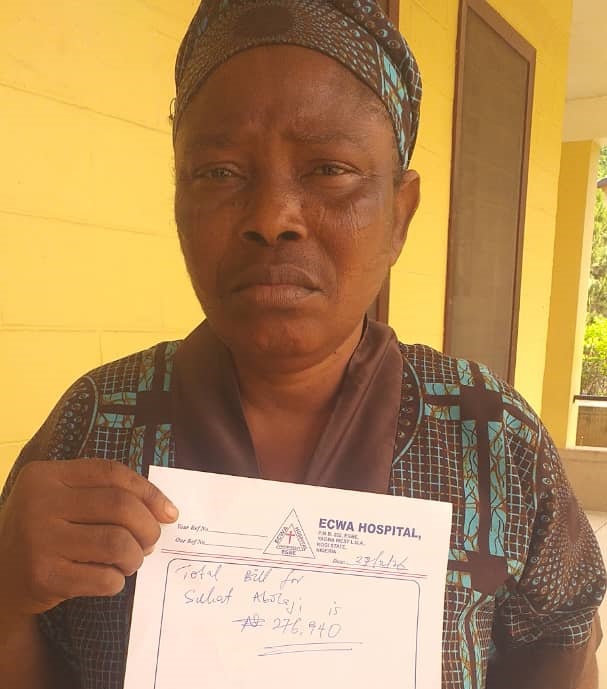 Your Ref No.
Our Ref No.
ECWA HOSPITAL EGBE
ECWA HOSPITAL,
P.M.B. 205, EGBE,
YAGBA WEST L.G.A.
KOGI STATE,
NIGERIA
Date:
Total Bill for
Sukat Abolaji is
₦ 276,940